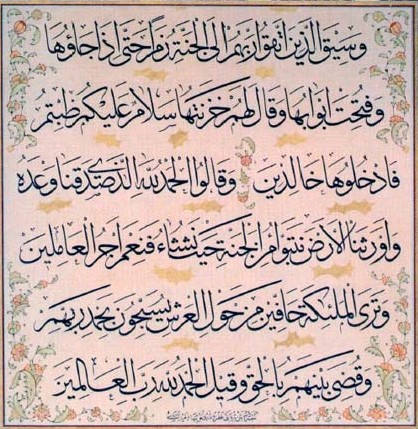 وَسِيقَ الَّذِينَ اتَّقَوْا رَبَّهُمْ إِلَى الْجَنَّةِ زُمَرًا حَتَّى إِذَا جَاؤُهَا
وَفُتِحَتْ أَبْوَابُهَا وَقَالَ لَهُمْ خَزَنَتُهَا سَلَامٌ عَلَيْكُمْ طِبْتُمْ
فَادْخُلُوهَا خَالِدِينَ وَقَالُوا الْحَمْدُ لِلَّهِ الَّذِي صَدَقَنَا وَعْدَهُ
وَأَوْرَثَنَا الْأَرْضَ نَتَبَوَّأُ مِنَ الْجَنَّةِ حَيْثُ نَشَاءُ فَنِعْمَ أَجْرُ الْعَامِلِينَ
وَتَرَى الْمَلَئِكَةَ حَافِّينَ مِنْ حَوْلِ الْعَرْشِ يُسَبِّحُونَ بِحَمْدِ رَبِّهِمْ
وَقُضِيَ بَيْنَهُمْ بِالْحَقِّ وَقِيلَ الْحَمْدُ لِلَّهِ رَبِّ الْعَالَمِينَ